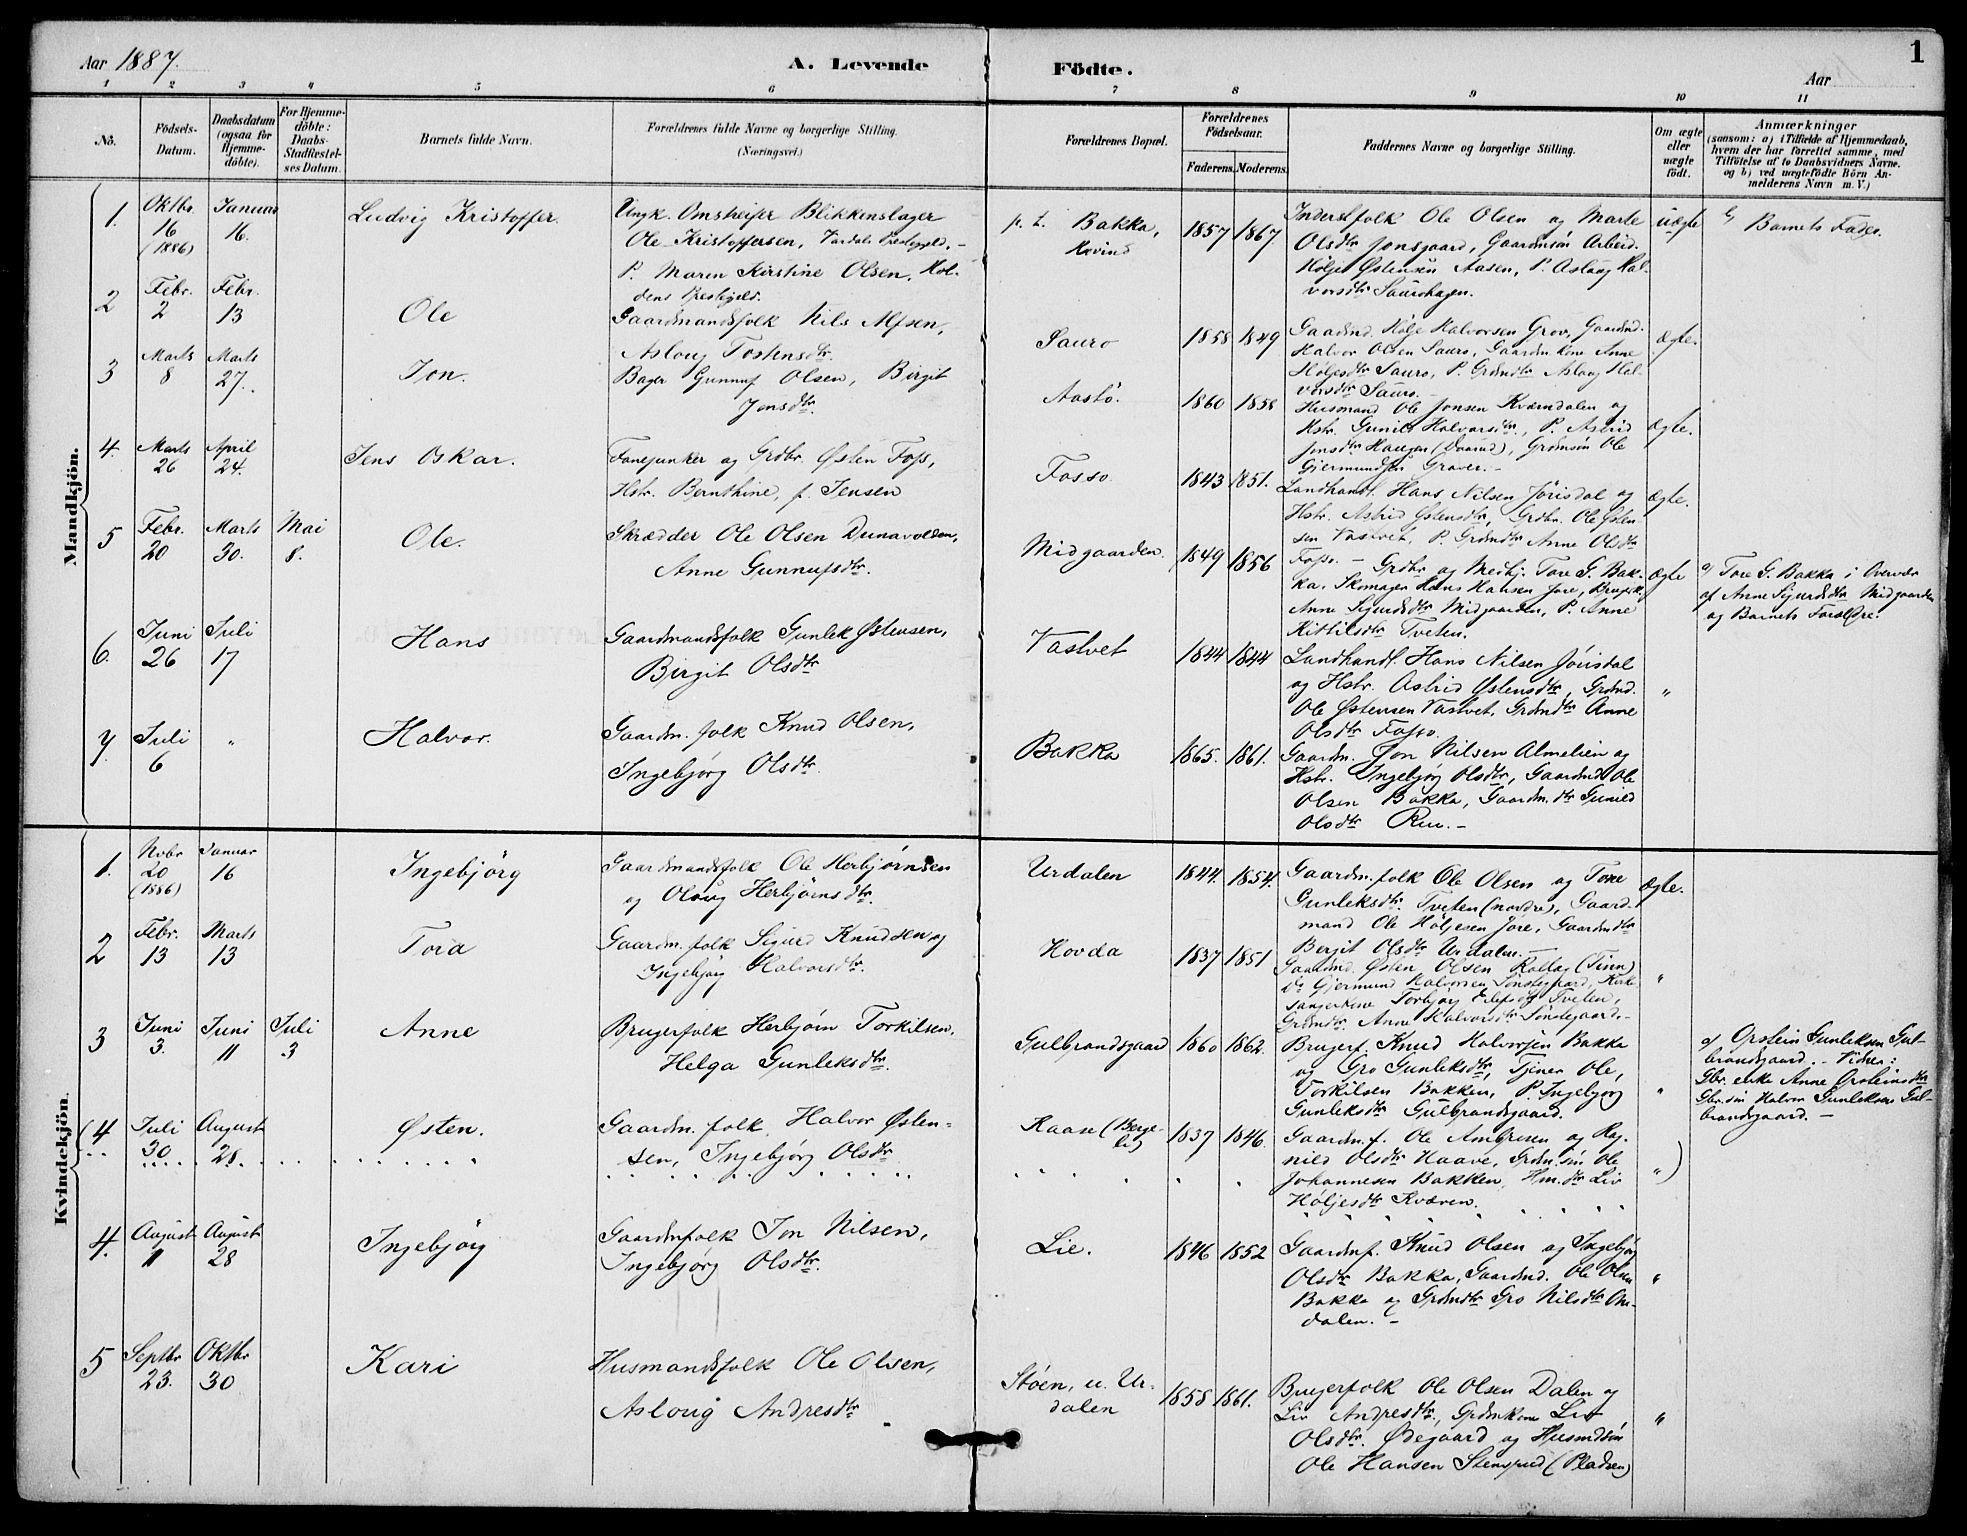 1
Aar 1887.
A. Levende Födte.
Aar
1 2 3 4 5 6 7 8 9 10 11
No.
Födsels-Datum.
Daabsdatum (ogsaa for Hjemme-döbte).
For Hjemme-döbte: Daabs-Stadfæstel-ses Datum.
Barnets fulde Navn.
Forældrenes fulde Navne og borgerlige Stilling.
(Næringsvei.)
Forældrenes Bopæl.
Forældrenes Födselsaar.
Faderens. Moderens.
Faddernes Navne og borgerlige Stilling.
Om ægte eller uægte födt.
Anmærkninger
(saasom: a) i Tilfælde af Hjemmedaab,
hvem der har forrettet samme, med
Tilföielse af to Daabsvidners Navne.
og b) ved uægtefödte Börn An-
melderens Navn m. V.)
Mandkjön.
1. Oktbr. 16 (1886) Januar 16. Ludvig Kristoffer.
Ungk. Omstreifer Blikkenslager
Ole Kristoffersen, Vardals Prestegjeld, -
P. Maren Kirstine Olsen, Hol-
dens Prestegjeld.
p. t. Bakka, Hovind 1857 1867
Inderstfolk Ole Olsen og Marte
Olsdtr Jonsgaard, Gaardmsön Arbeid.
Hölje Östensen Aasen, P. Aslaug Hal-
vorsdtr Saurohagen.
uægte
b) Barnets Fader.
2 Febr. 2 Febr. 13 Ole
Gaardmandsfolk Nils Alfsen,
Aslaug Tostensdtr.
Sauro 1858 1849
Gaardmd. Hölje Halvorsen Grov, Gaardmd.
Halvor Olsen Sauro, Gaardm. kone Anne
Höljesdtr Sauro, P. Grdmdtr Aslaug Hal-
vorsdtr Sauro.
ægte.
3 Marts 8 Marts 27. Jon.
Bager Gunnuf Olsen, Birgit
Jonsdtr.
Aastö. 1860 1858
Husmand Ole Jonsen Kværndalen og
Hstr. Gunild Halvorsdtr., P. Astrid
Jonsdtr Haugen (Daarud), Grdmsön Ole
Gjermundsen Graver. -
ægte.
4. Marts 26 April 24. Jens Oskar.
Fanejunker og Grdbr. Østen Foss,
Hstr. Bernthine, f. Jensen
Fosso. 1843 1851.
Landhandl. Hans Nilsen Jörisdal og
Hstr. Astrid Østensdtr, Grdbr. Ole Østen-
sen Vastvet, P. Grdmdtr Anne Olsdtr
Fosso. -
ægte.
5 Febr. 20 Marts 30. Mai 8. Ole.
Skrædder Ole Olsen Dunavolden,
Anne Gunnufsdtr.
Midgaarden. 1849 1856
Grdbr og Medhj. Tore G. Bak-
ka, Skomager Hans Hansen Jore,
Anne Sjurdsdtr Midgaarden, P. Anne
Kittilsdtr Tveten.
ægte
a) Tore G. Bakka i Overvær
af Anne Sjurdsdtr Midgaarden
og Barnets Forældre.
6. Juni 26 Juli 17 Hans
Gaardmandsfolk Gunlek Østensen,
Birgit Olsdtr
Vastvet 1844 1844
Landhandl. Hans Nilsen Jörisdal
og Hstr. Astrid Østensdtr, Grdmd.
Ole Østensen Vastvet, Grdmdtr Anne
Olsdtr Fosso.
"
7. Juli 6 " Halvor.
Gaardm. folk Knud Olsen,
Ingebjørg Olsdtr.
Bakka 1865. 1861.
Gaardm. Jon Nilsen Almelien og
Hstr. Ingebjørg Olsdtr, Gaardmd Ole
Olsen Bakka, Gaardm.dtr Gunild
Olsdtr Rui. -
Kvindekjön.
1. Nvbr 20 (1886) Januar 16 Ingebjörg
Gaardmandsfolk Ole Herbjørnsen
og Olaug Herbjörnsdtr.
Urdalen 1844. 1854.
Gaardm. folk Ole Olsen og Tone
Gunleksdtr. Tveten (nordre), Gaard-
mand Ole Höljesen Jore, Gaardmdtr
Bergit Olsdtr Urdalen. -
ægte.
2 Febr. 13 Marts 13 Tora
Gaardm. folk Sigurd Knudsen og
Ingebjørg Halvorsdtr.
Hovda 1837 1851
Gaardmd. Østen Olsen Rollag (Tinn)
do Gjermund Halvorsen Sönstegaard, Kirke-
sangerkone Torbjørg Eilefsdtr Tveten,
Grdmdtr. Anne Halvorsdtr Sönstegaard. -
"
3 Juni 3. Juni 11 Juli 3 Anne
Brugerfolk Herbjörn Torkilsen,
Helga Gunleksdtr.
Gulbrandsgaard 1860 1862.
Brugerf. Knud Halvorsen Bakke
og Gro Gunleksdtr, Tjener Ole
Torkilsen Bakken, P. Ingebjørg
Gunleksdtr Gulbrandsgaard.
"
a) Østein Gunleksen Gul-
brandsgaard. - Vidner:
Gbr. enke Anne Østeinsdtr
Gbr. sön Halvor Gunleksen Gul-
brandsgaard. -
(4 Juli 30 August 28. Østen.
Gaardm. folk Halvor Østen-
sen, Ingebjørg Olsdtr
Haave (Berge-lid) 1837 1846.
Gaardm. f. Ole Andresen og Rag-
nild Olsdtr Haave, Grdm. sön Ole
Johannesen Bakken, Hm. dtr Liv
Höljesdtr Kværen.
")
4. August 11 August 28 Ingebjörg
Gaardmfolk Jon Nilsen,
Ingebjørg Olsdtr.
Lie. 1846 1852
Gaardmf. Knud Olsen og Ingebjørg
Olsdtr Bakka, Gaardmd. Ole Olsen
Bakka og Grdmdtr Gro Nilsdtr Om-
dalen. -
"
5 Septbr 23. Oktbr 30 Kari
Husmandsfolk Ole Olsen,
Aslaug Andresdtr
Støen, u. Ur-
dalen 1858 1861.
Brugerfolk Ole Olsen Dalen og
Liv Andresdtr, Grdmkone Liv
Olsdtr. Ødegaard og Husmdsön
Ole Hansen Stensrud (Pladsen)
"